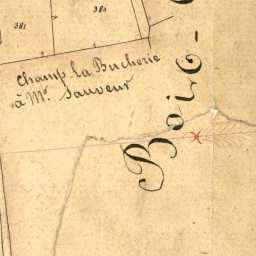 381
381
Champ la Bucherie
à Mr. Sauveur
Bois